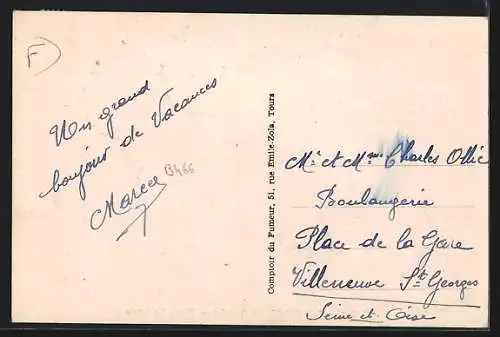 F
Un grand
bonjour de Vacances
Marcel
B466
Comptoir du Fumeur, 51, rue Emile-Zola, Tours
Mr et Mme Charles Ollic
Boulangerie
Place de la Gare
Villeneuve St Georges
Seine et Oise